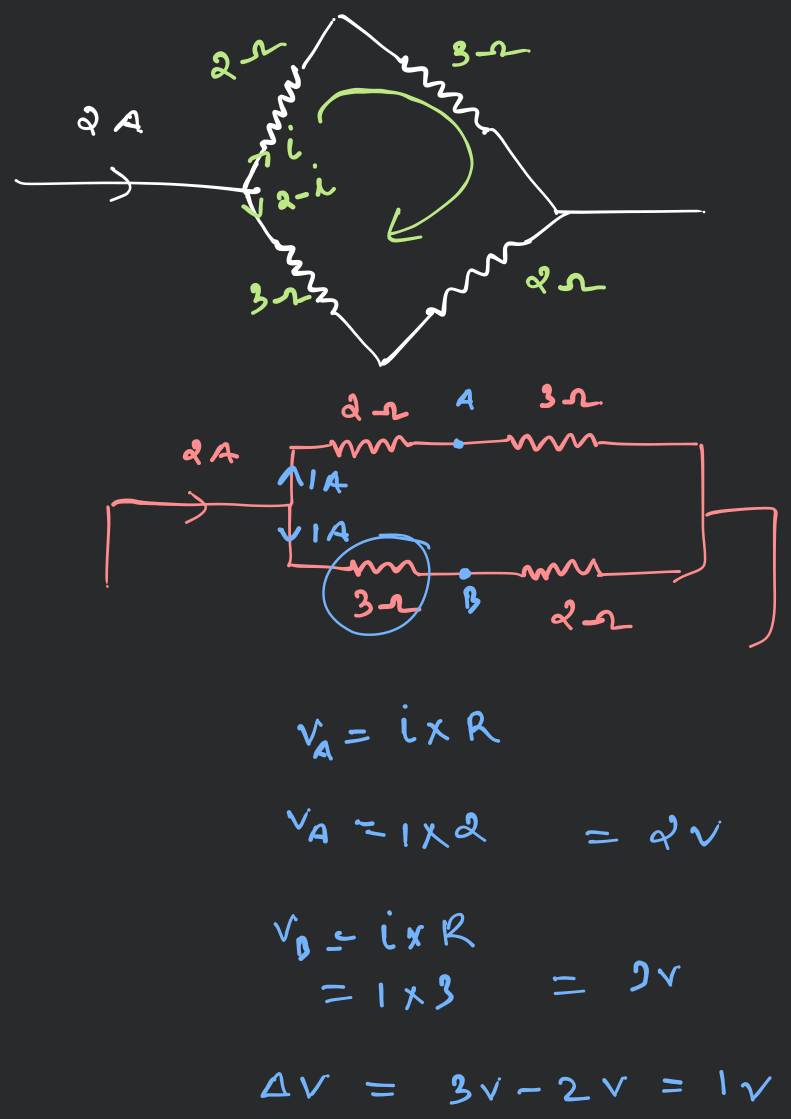 2Ω 3Ω
2A
i
2-i
3Ω 2Ω
2Ω A 3Ω
2A
1A
1A
3Ω B 2Ω
V_A = i × R
V_A = 1 × 2 = 2V
V_B = i × R
= 1 × 3 = 3V
ΔV = 3V - 2V = 1V